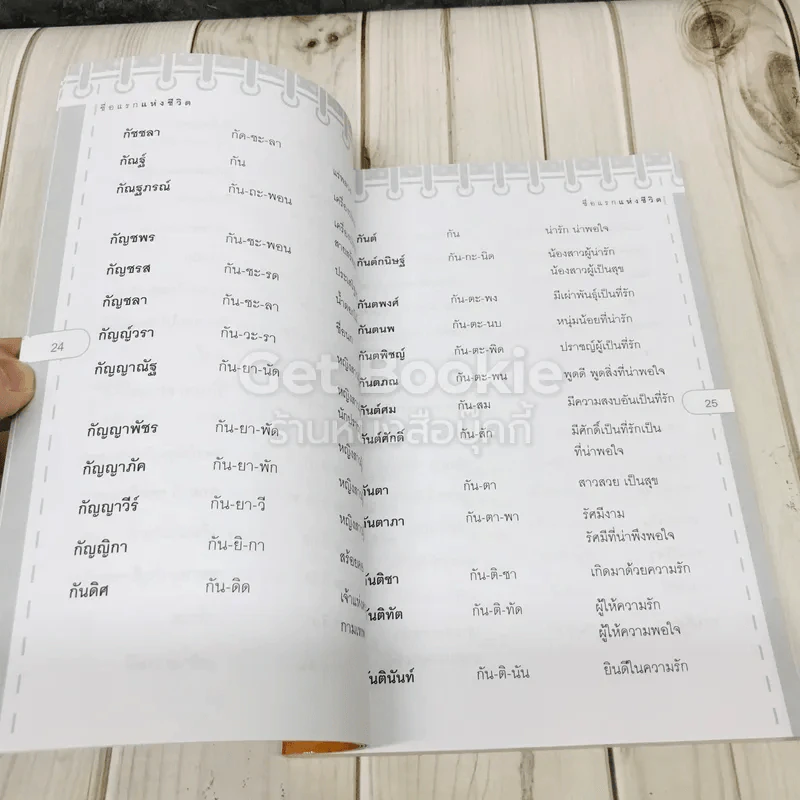 ชื่อแรกแห่งชีวิต
กัชชลา กัด-ชะ-ลา
กัณฐ์ กัน
กัณฐภรณ์ กัน-ถะ-พอน
กัญชพร กัน-ชะ-พอน
กัญชรส กัน-ชะ-รด
กัญชลา กัน-ชะ-ลา
กัญญ์วรา กัน-วะ-รา
24
กัญญาณัฐ กัน-ยา-นัด
กัญญาพัชร กัน-ยา-พัด
กัญญาภัค กัน-ยา-พัก
กัญญาวีร์ กัน-ยา-วี
กัญญิกา กัน-ยิ-กา
กันดิศ กัน-ดิด
ชื่อแรกแห่งชีวิต
กันต์ กัน น่ารัก น่าพอใจ
กันต์กนิษฐ์ กัน-กะ-นิด น้องสาวผู้น่ารัก
น้องสาวผู้เป็นสุข
กันตพงศ์ กัน-ตะ-พง มีเผ่าพันธุ์เป็นที่รัก
กันตนพ กัน-ตะ-นบ หนุ่มน้อยที่น่ารัก
กันตพิชญ์ กัน-ตะ-พิด ปราชญ์ผู้เป็นที่รัก
กันตภณ กัน-ตะ-พน พูดดี พูดสิ่งที่น่าพอใจ
กันต์ศม กัน-สม มีความสงบอันเป็นที่รัก
25
กันต์ศักดิ์ กัน-สัก มีศักดิ์เป็นที่รักเป็น
ที่น่าพอใจ
กันตา กัน-ตา สาวสวย เป็นสุข
กันตาภา กัน-ตา-พา รัศมีงาม
รัศมีที่น่าพึงพอใจ
กันติชา กัน-ติ-ชา เกิดมาด้วยความรัก
กันติทัต กัน-ติ-ทัด ผู้ให้ความรัก
ผู้ให้ความพอใจ
กันตินันท์ กัน-ติ-นัน ยินดีในความรัก
Get Bookie
ร้านหนังสือมุกกี้